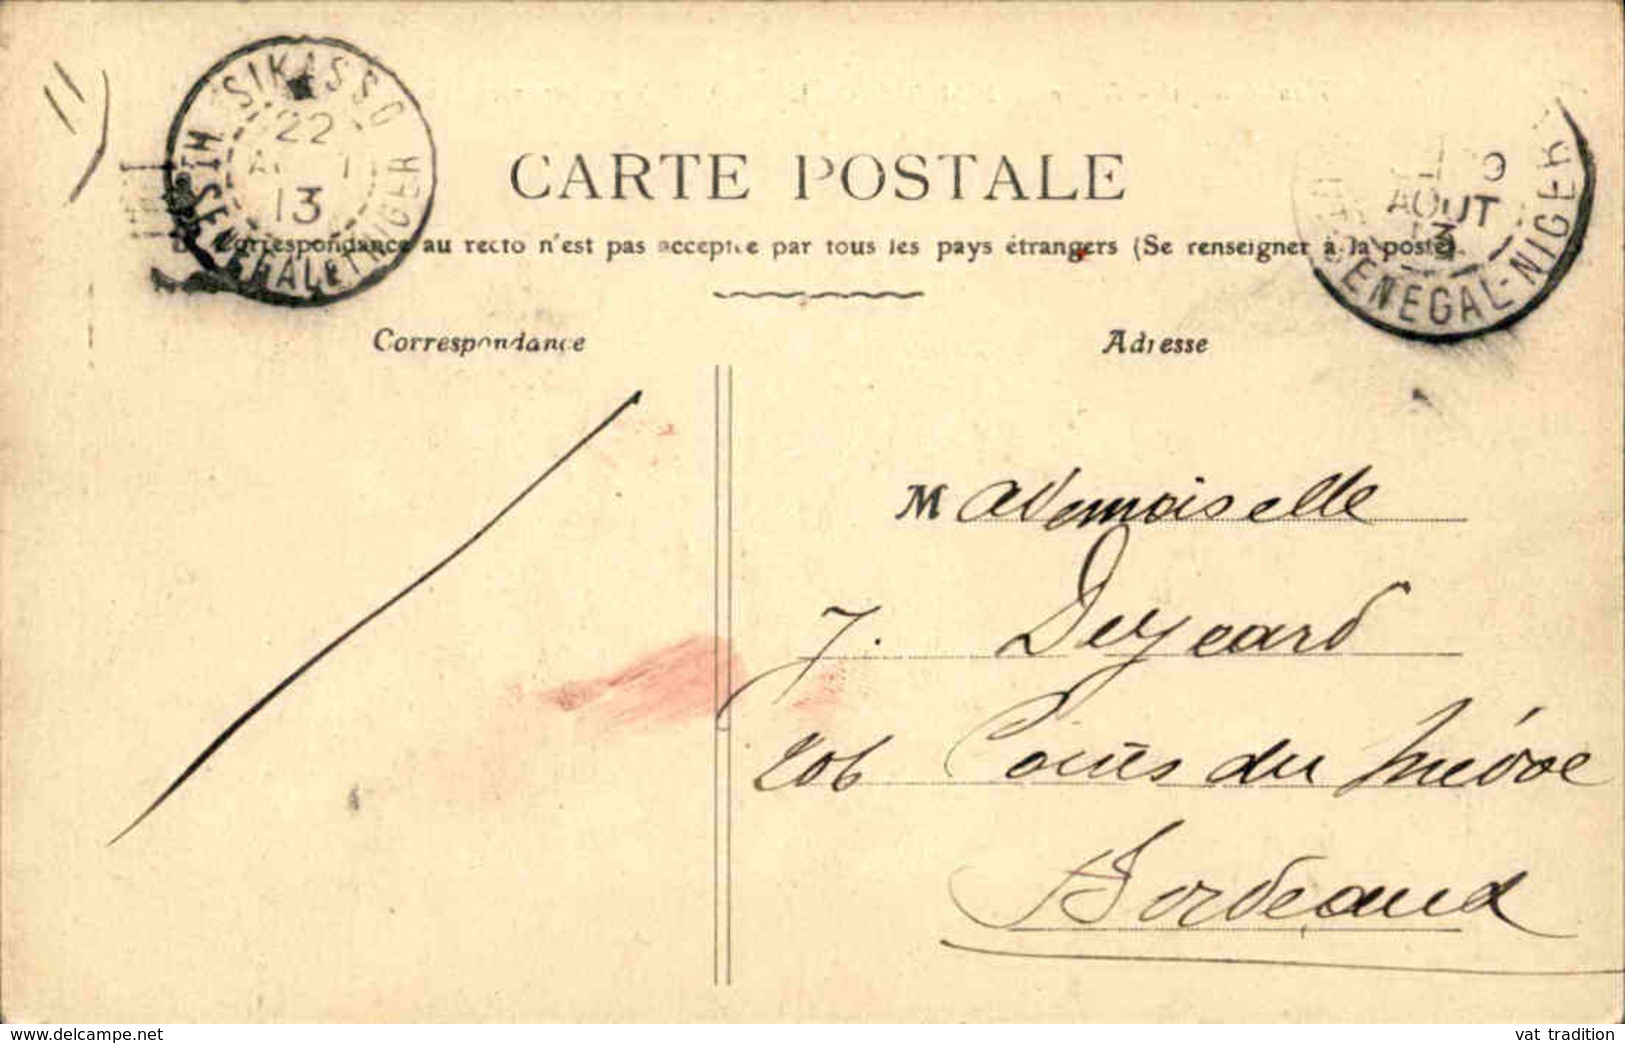 SIKASSO
22
13
HT SENEGAL ET NIGER
9
AOUT
13
SENEGAL-NIGER
CARTE POSTALE
Correspondance au recto n'est pas acceptée par tous les pays étrangers (Se renseigner à la poste).
Correspondance
Adresse
Mademoiselle
J. Dejeard
206 Cours du
Bordeaux
www.delcampe.net
vat tradition